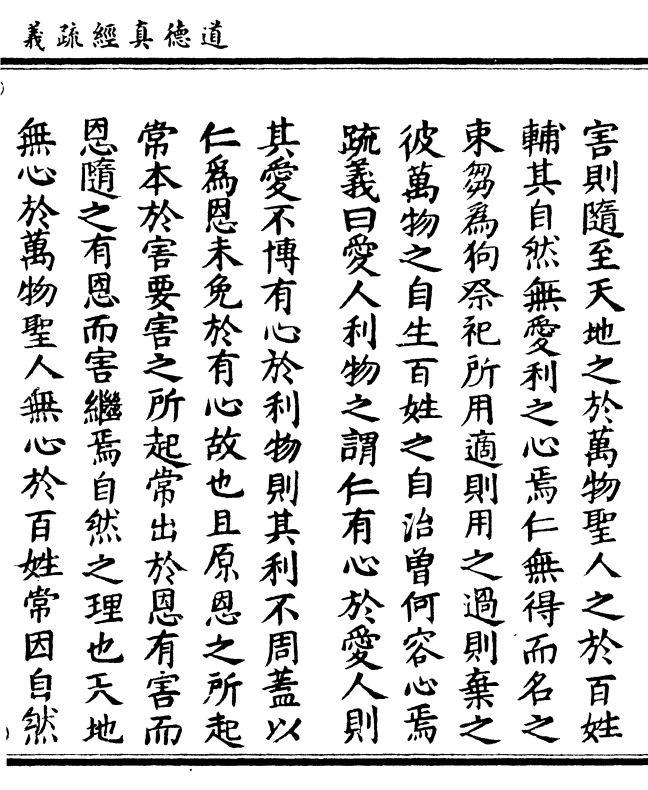 道德真經疏義
害則隨至天地之於萬物聖人之於百姓
輔其自然無愛利之心焉仁無得而名之
束芻爲狗祭祀所用適則用之過則棄之
彼萬物之自生百姓之自治曾何容心焉
疏義曰愛人利物之謂仁有心於愛人則
其愛不博有心於利物則其利不周蓋以
仁爲恩未免於有心故也且原恩之所起
常本於害要害之所起常出於恩有害而
恩隨之有恩而害繼焉自然之理也天地
無心於萬物聖人無心於百姓常因自然